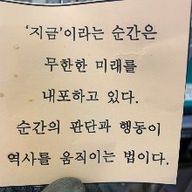 '지금'이라는 순간은
무한한 미래를
내포하고 있다.
순간의 판단과 행동이
역사를 움직이는 법이다.